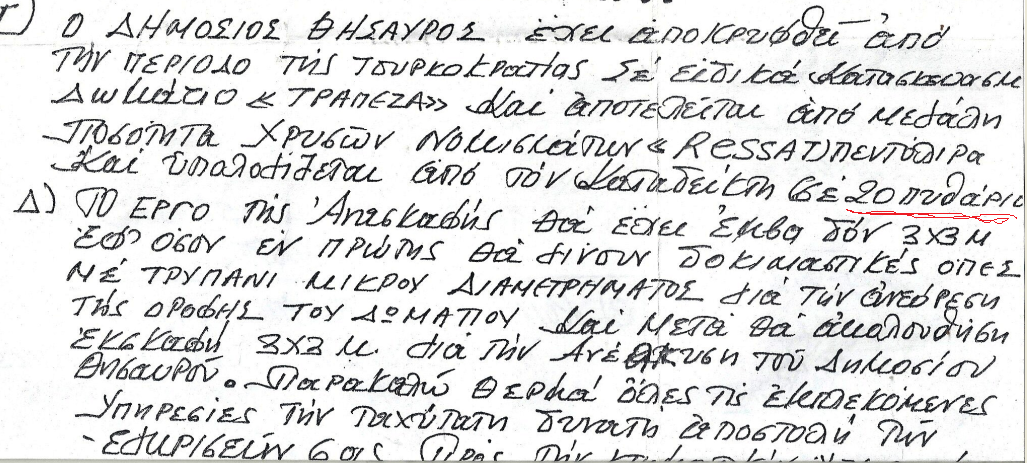 Γ) Ο ΔΗΜΟΣΙΟΣ ΘΗΣΑΥΡΟΣ ἔχει ἀποκρυφθεῖ ἀπό
τήν ΠΕΡΙΟΔΟ τῆς Τουρκοκρατίας Σέ εἰδικά Κατασκευασμ
Δωμάτιο «ΤΡΑΠΕΖΑ» Καί ἀποτελεῖται ἀπό μεγάλη
Ποσότητα Χρυσῶν Νομισμάτων «RESSAT) πεντόλιρα
Καί ὑπολογίζεται ἀπό τόν Καταδείκτη Σέ 20 πυθάρια
Δ) ΤΟ ΕΡΓΟ τῆς Ἀνασκαφῆς θά ἔχει Ἐμβαδόν 3Χ3 Μ
Ἐφ' ὅσον ΕΝ ΠΡΩΤΗΣ θά γίνουν δοκιμαστικές ΟΠΕΣ
ΜΕ ΤΡΥΠΑΝΙ ΜΙΚΡΟΥ ΔΙΑΜΕΤΡΗΜΑΤΟΣ διά τήν ἀνεύρεση
τῆς ΟΡΟΦΗΣ ΤΟΥ ΔΩΜΑΤΙΟΥ Καί Μετά θά ἀκολουθήση
Ἐκσκαφή 3Χ3 Μ. διά τήν Ἀνέλκυση τοῦ Δημοσίου
Θησαυροῦ. Παρακαλῶ Θερμά ὅλες τίς ἐμπλεκόμενες
ΥΠΗΡΕΣΙΕΣ τήν ταχύτατη δυνατή ἀποστολή τῶν
σας Πρός τήν